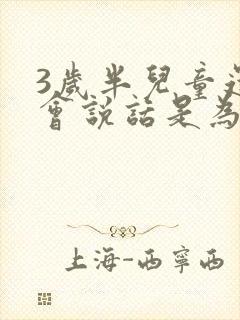 3歲半兒童還
會說話是為
上海-西寧西